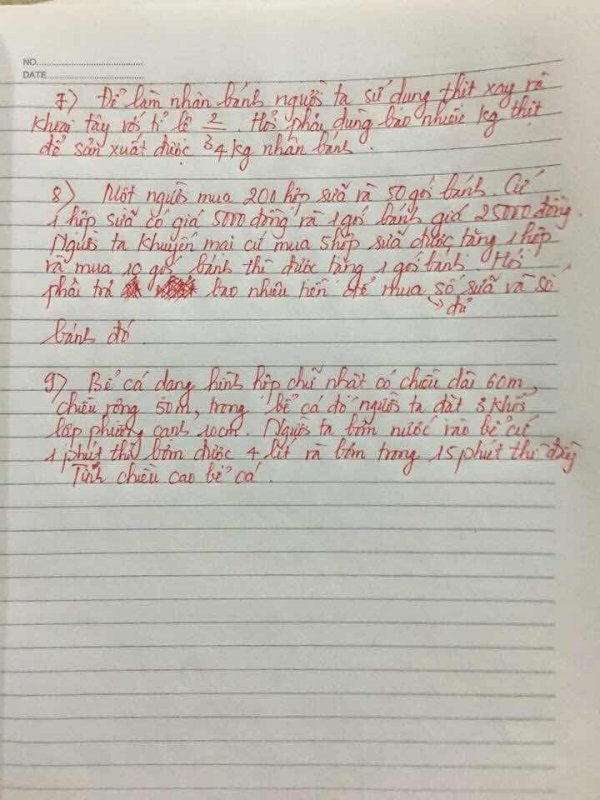 NO.
DATE
7) Để làm nhân bánh người ta sử dụng thịt xay và
khoai tây với tỉ lệ 2/3. Hỏi phải dùng bao nhiêu kg thịt
để sản xuất được 4kg nhân bánh.
8) Một người mua 200 hộp sữa và 50 gói bánh. Cứ
1 hộp sữa có giá 5000 đồng và 1 gói bánh giá 25000 đồng.
Người ta khuyến mại cứ mua 5 hộp sữa được tặng 1 hộp
và mua 10 gói bánh thì được tặng 1 gói bánh. Hỏi
phải trả bao nhiêu tiền để mua số sữa và số
đủ
bánh đó.
9) Bể cá dạng hình hộp chữ nhật có chiều dài 60m,
chiều rộng 50m, trong bể cá đó người ta đặt 3 khối
lập phương cạnh 10cm. Người ta bơm nước vào bể cứ
1 phút thì bơm được 4 lít và bơm trong 15 phút thì đầy
Tính chiều cao bể cá.